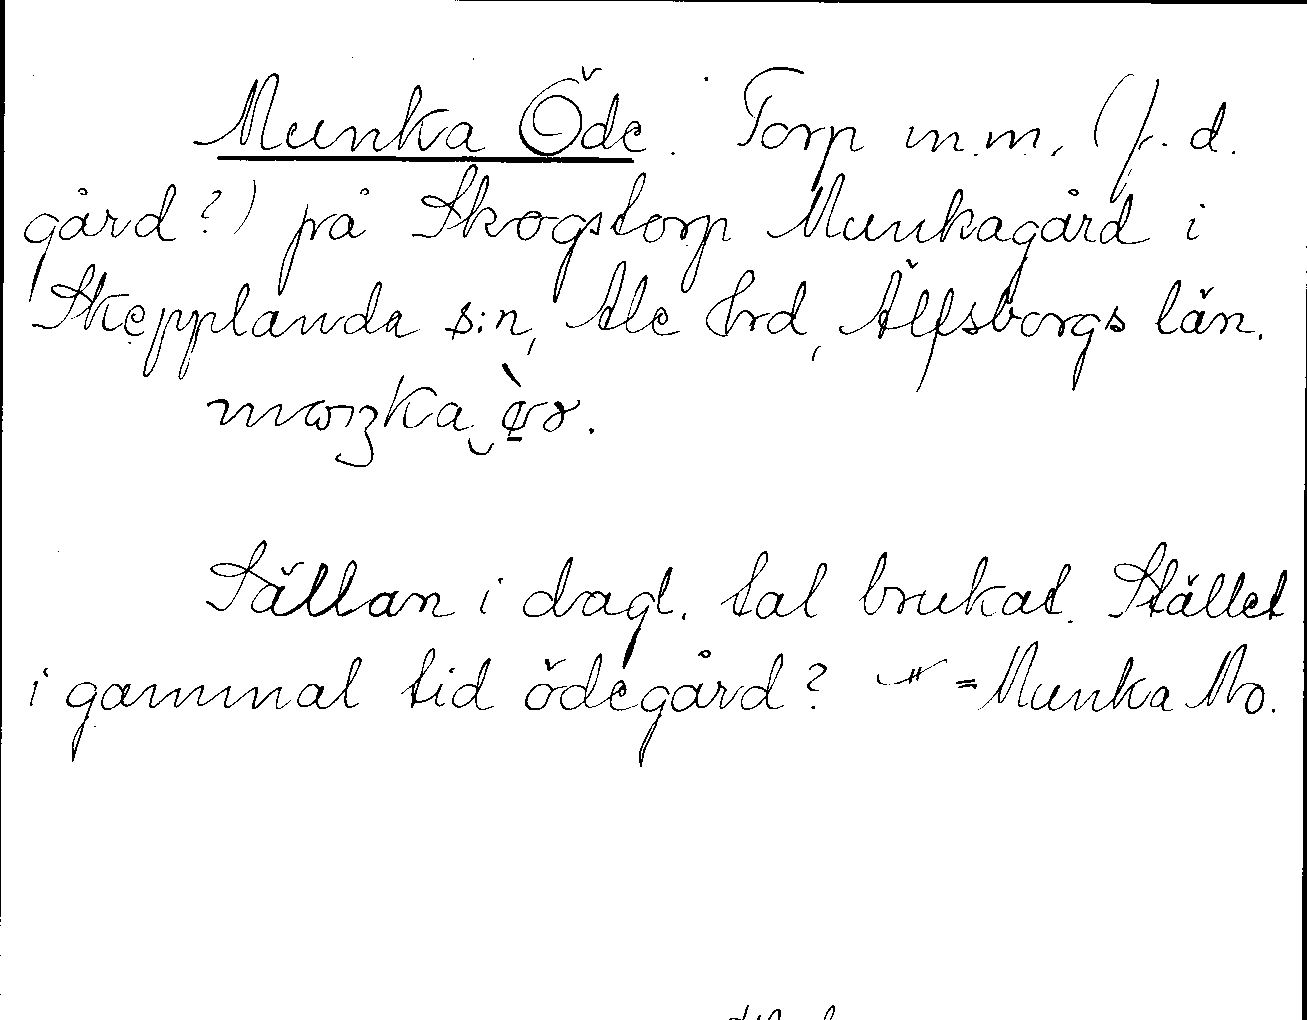 Munka Öde. Torp m.m. (f. d.
gård?) på Skogstorp Munkagård i
Skepplanda s:n, Ale hrd, Älfsborgs län.
Sällan i dagl. tal brukat. Stället
i gammal tid ödegård? = Munka Mo.